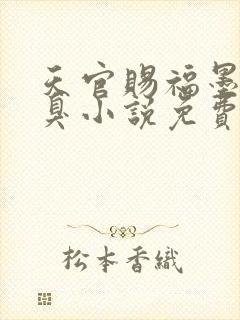 天官賜福墨
臭小説免費
松本香織